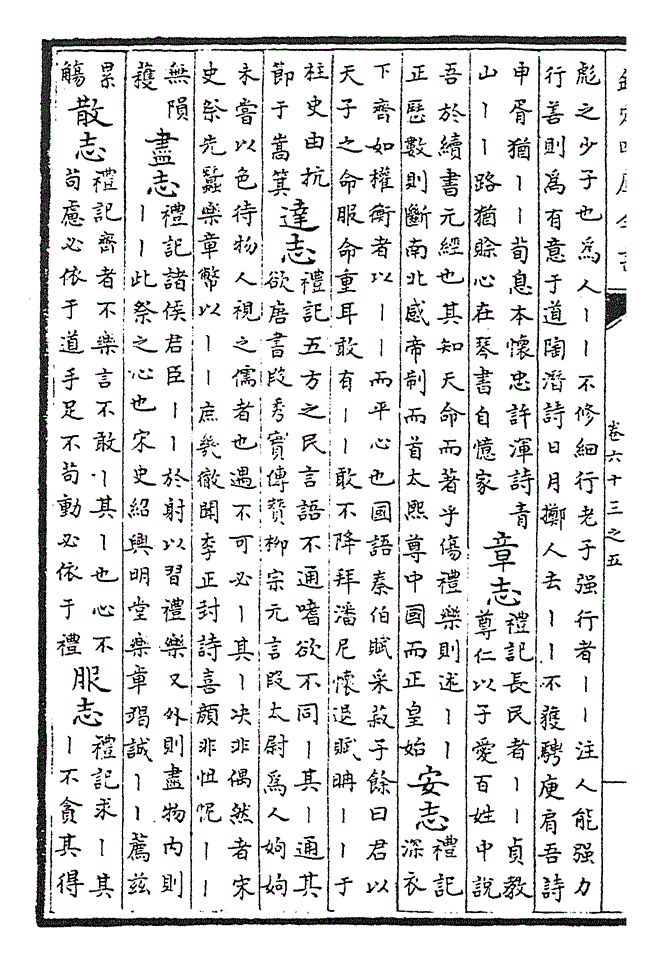 欽定四庫全書
卷六十三之五
彪之少子也為人丨丨不修細行老子强行者丨丨注人能强力
行善則為有意于道陶潛詩日月擲人去丨丨不獲騁庾肩吾詩
申胥猶丨丨荀息本懷忠許渾詩青
山丨丨路猶賒心在琴書自憶家
章志
禮記長民者丨丨貞教
尊仁以子愛百姓中說
吾於續書元經也其知天命而著乎傷禮樂則述丨丨
正歷數則斷南北感帝制而首太熙尊中國而正皇始
安志
禮記
深衣
下齊如權衡者以丨丨而平心也國語秦伯賦采菽子餘曰君以
天子之命服命重耳敢有丨丨敢不降拜潘尼懷退賦丨丨于
柱史由抗
節于嵩箕
達志
禮記五方之民言語不通嗜欲不同丨其丨通其
欲唐書段秀實傳贊柳宗元言段太尉為人姁姁
未嘗以色待物人視之儒者也遇不可必丨其丨决非偶然者宋
史祭先蠶樂章幣以丨丨庶幾徹聞李正封詩喜顏非忸怩丨丨
無隕
穫
盡志
禮記諸侯君臣丨丨於射以習禮樂又外則盡物内則
丨丨此祭之心也宋史紹興明堂樂章竭誠丨丨薦兹
累
觴
散志
禮記齊者不樂言不敢丨其丨也心不
苟慮必依于道手足不苟動必依于禮
服志
禮記求丨其
丨不貪其得